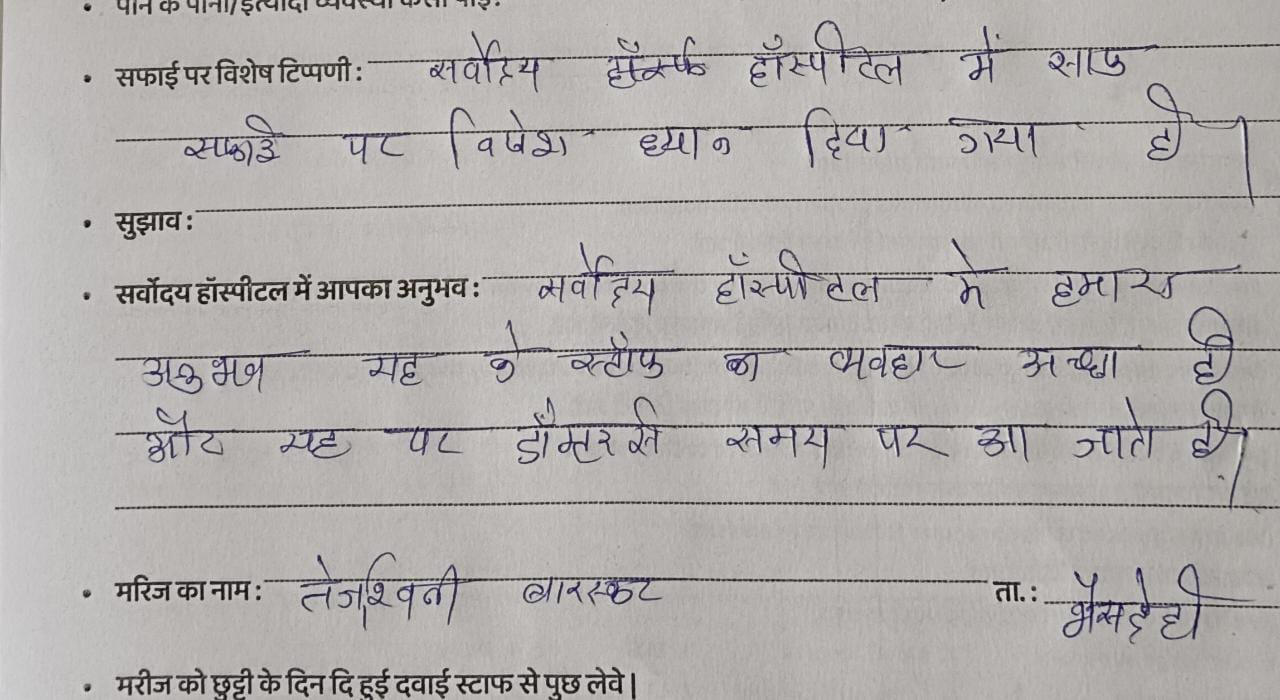 • पीने के पानी/इत्यादी व्यवस्था कैसी पाई:
• सफाई पर विशेष टिप्पणी: सर्वोदय हॉस्पीटल में साफ
सफाई पर विषेश ध्यान दिया गया है।
• सुझाव:
• सर्वोदय हॉस्पीटल में आपका अनुभव: सर्वोदय हॉस्पीटल मे हमारा
अनुभव यह के स्टॉफ का व्यवहार अच्छा है
और यह पर डॉक्टर समय पर आ जाते है।
• मरिज का नाम: तेजश्विनी बारस्कर ता.: भैसदेही
• मरीज को छुट्टी के दिन दि हुई दवाई स्टाफ से पुछ लेवे।